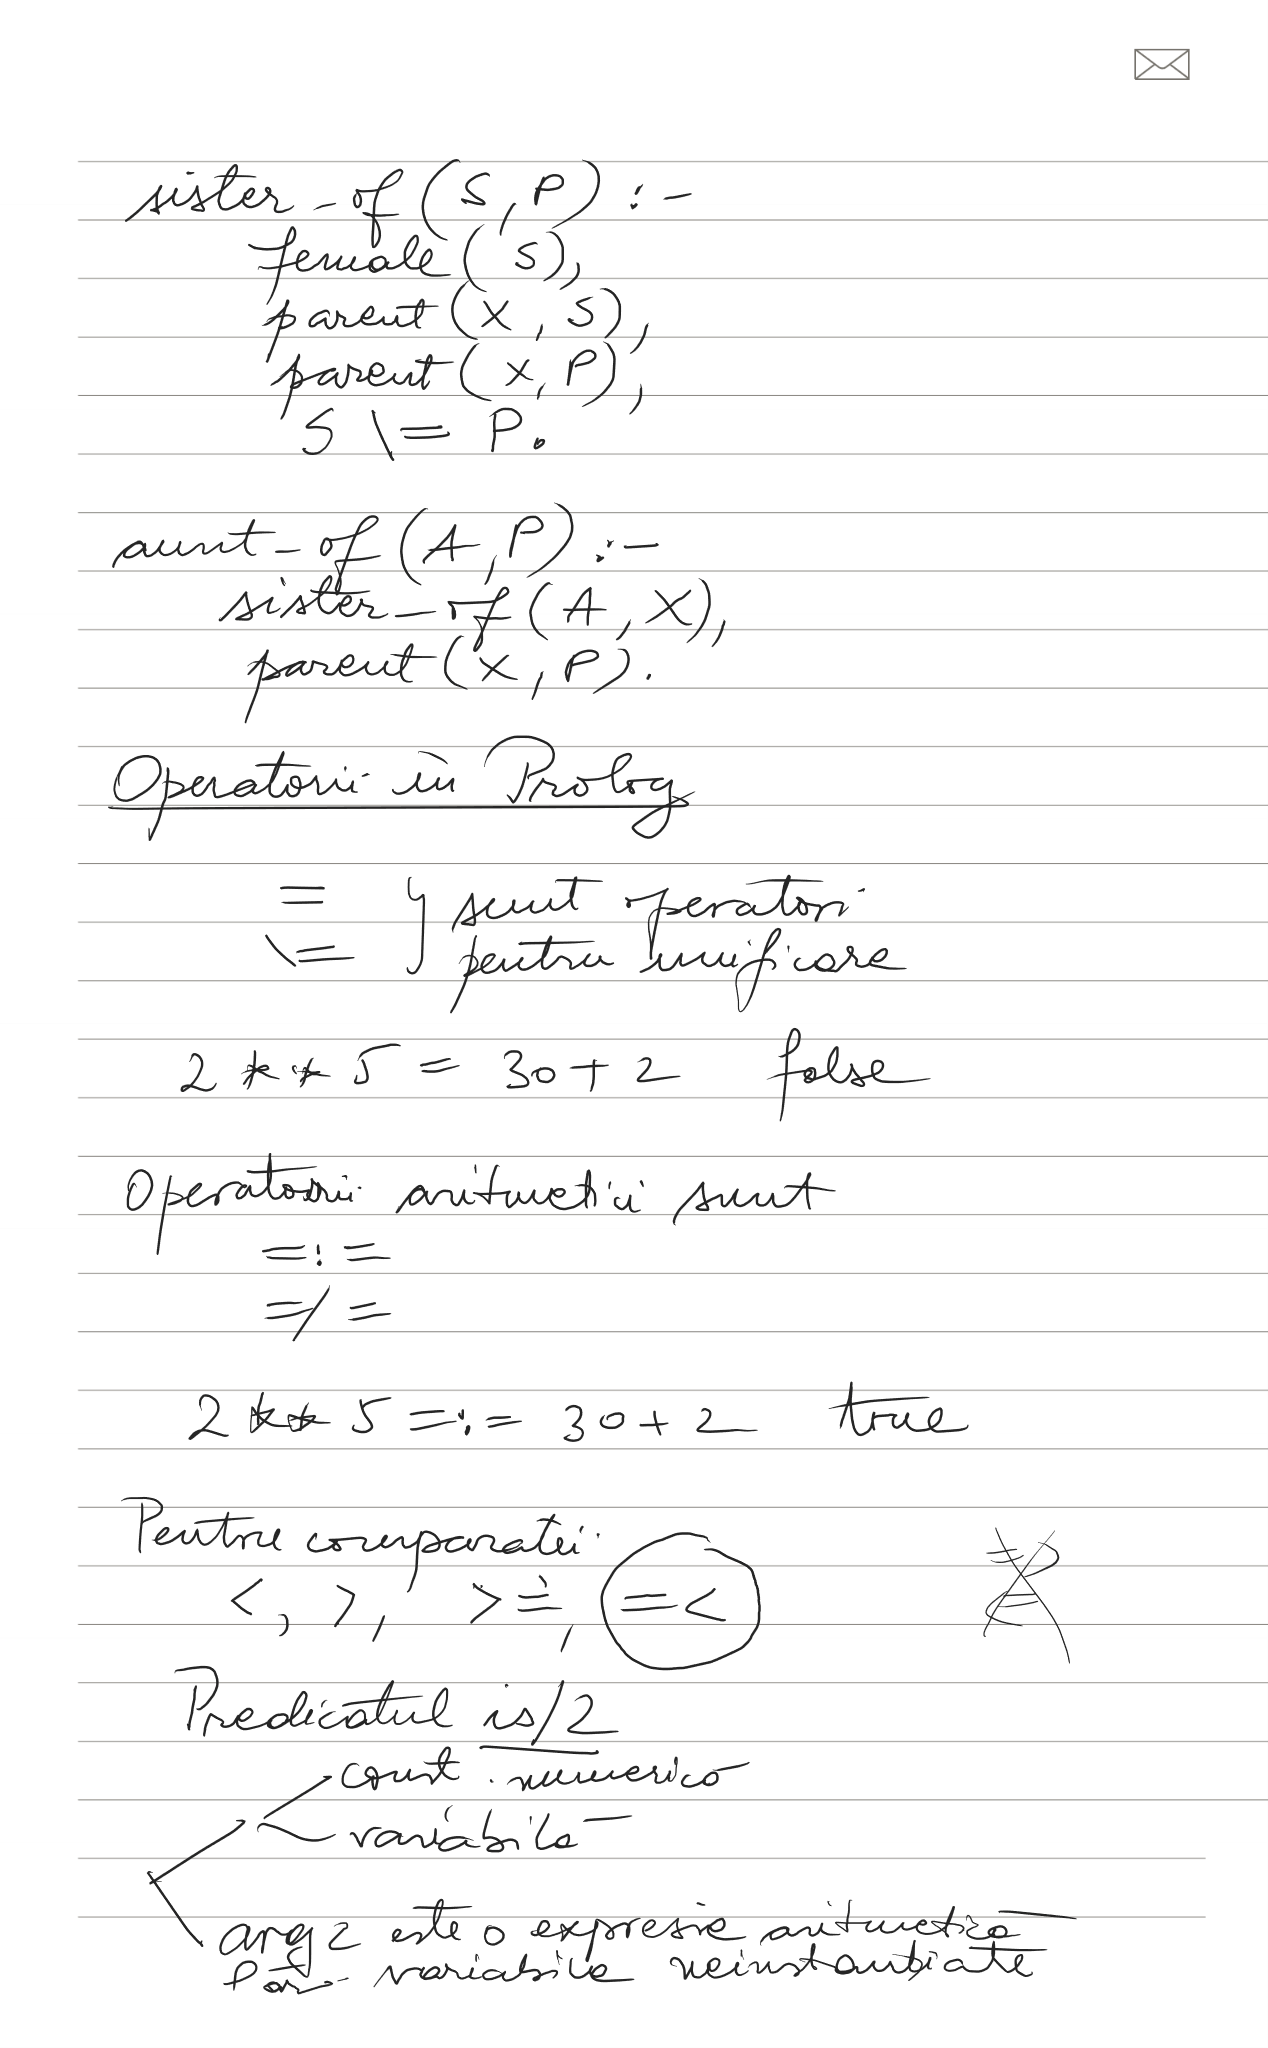 sister_of(S,P) :-
female(S),
parent(X,S),
parent(X,P),
S \= P.
aunt_of(A,P) :-
sister_of(A,X),
parent(X,P).
Operatorii în Prolog
= } sunt operatori
\= pentru unificare
2 ** 5 = 30+2 false
Operatorii aritmetici sunt
=:=
=/=
2 ** 5 =:= 30+2 true
Pentru comparații
<, >, >=, =<
Predicatul is/2
const. numerică
variabilă
arg 2 este o expresie aritmetică
fără variabile neinstanțiate